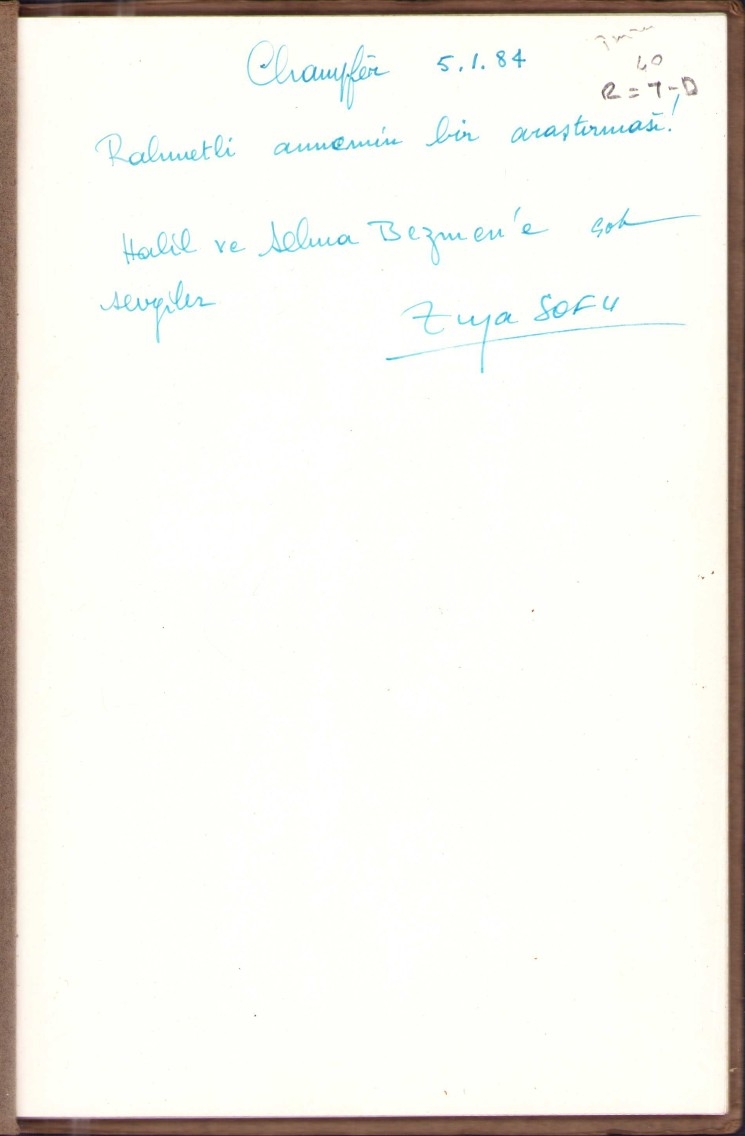 Champfèr 5.1.84
40
R=7-D
Rahmetli annemin bir araştırması!
Halil ve Selma Bezmen'e çok
sevgiler
Ziya SOFU